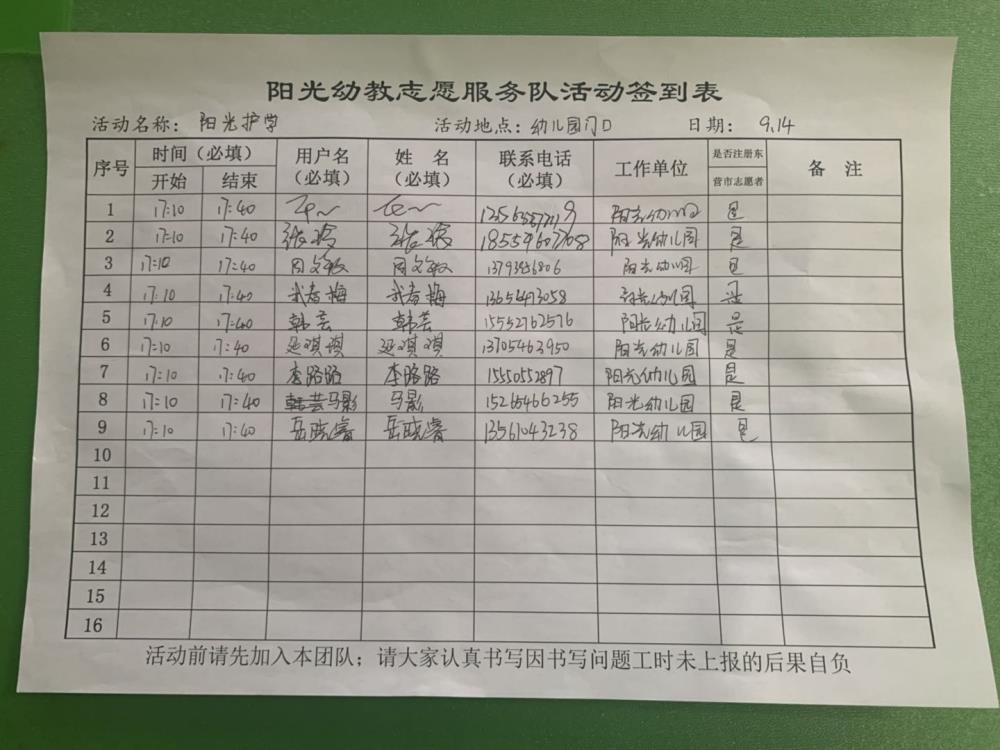 阳光幼教志愿服务队活动签到表
活动名称： 阳光护学 活动地点：幼儿园门口 日期： 9.14
序号 时间（必填） 开始 结束 用户名（必填） 姓名（必填） 联系电话（必填） 工作单位 是否注册东营市志愿者 备注
1 17:10 17:40 是
2 17:10 17:40 阳光幼儿园 是
3 17:10 17:40 周文敏 周文敏 阳光幼儿园 是
4 17:10 17:40 武春梅 武春梅 阳光幼儿园 是
5 17:10 17:40 韩芸 韩芸 15552762576 阳光幼儿园 是
6 17:10 17:40 延琪琪 延琪琪 13705463950 阳光幼儿园 是
7 17:10 17:40 李路路 李路路 15550552897 阳光幼儿园 是
8 17:10 17:40 马影 马影 15265466255 阳光幼儿园 是
9 17:10 17:40 岳晓睿 岳晓睿 13561043238 阳光幼儿园 是
10
11
12
13
14
15
16
活动前请先加入本团队；请大家认真书写因书写问题工时未上报的后果自负